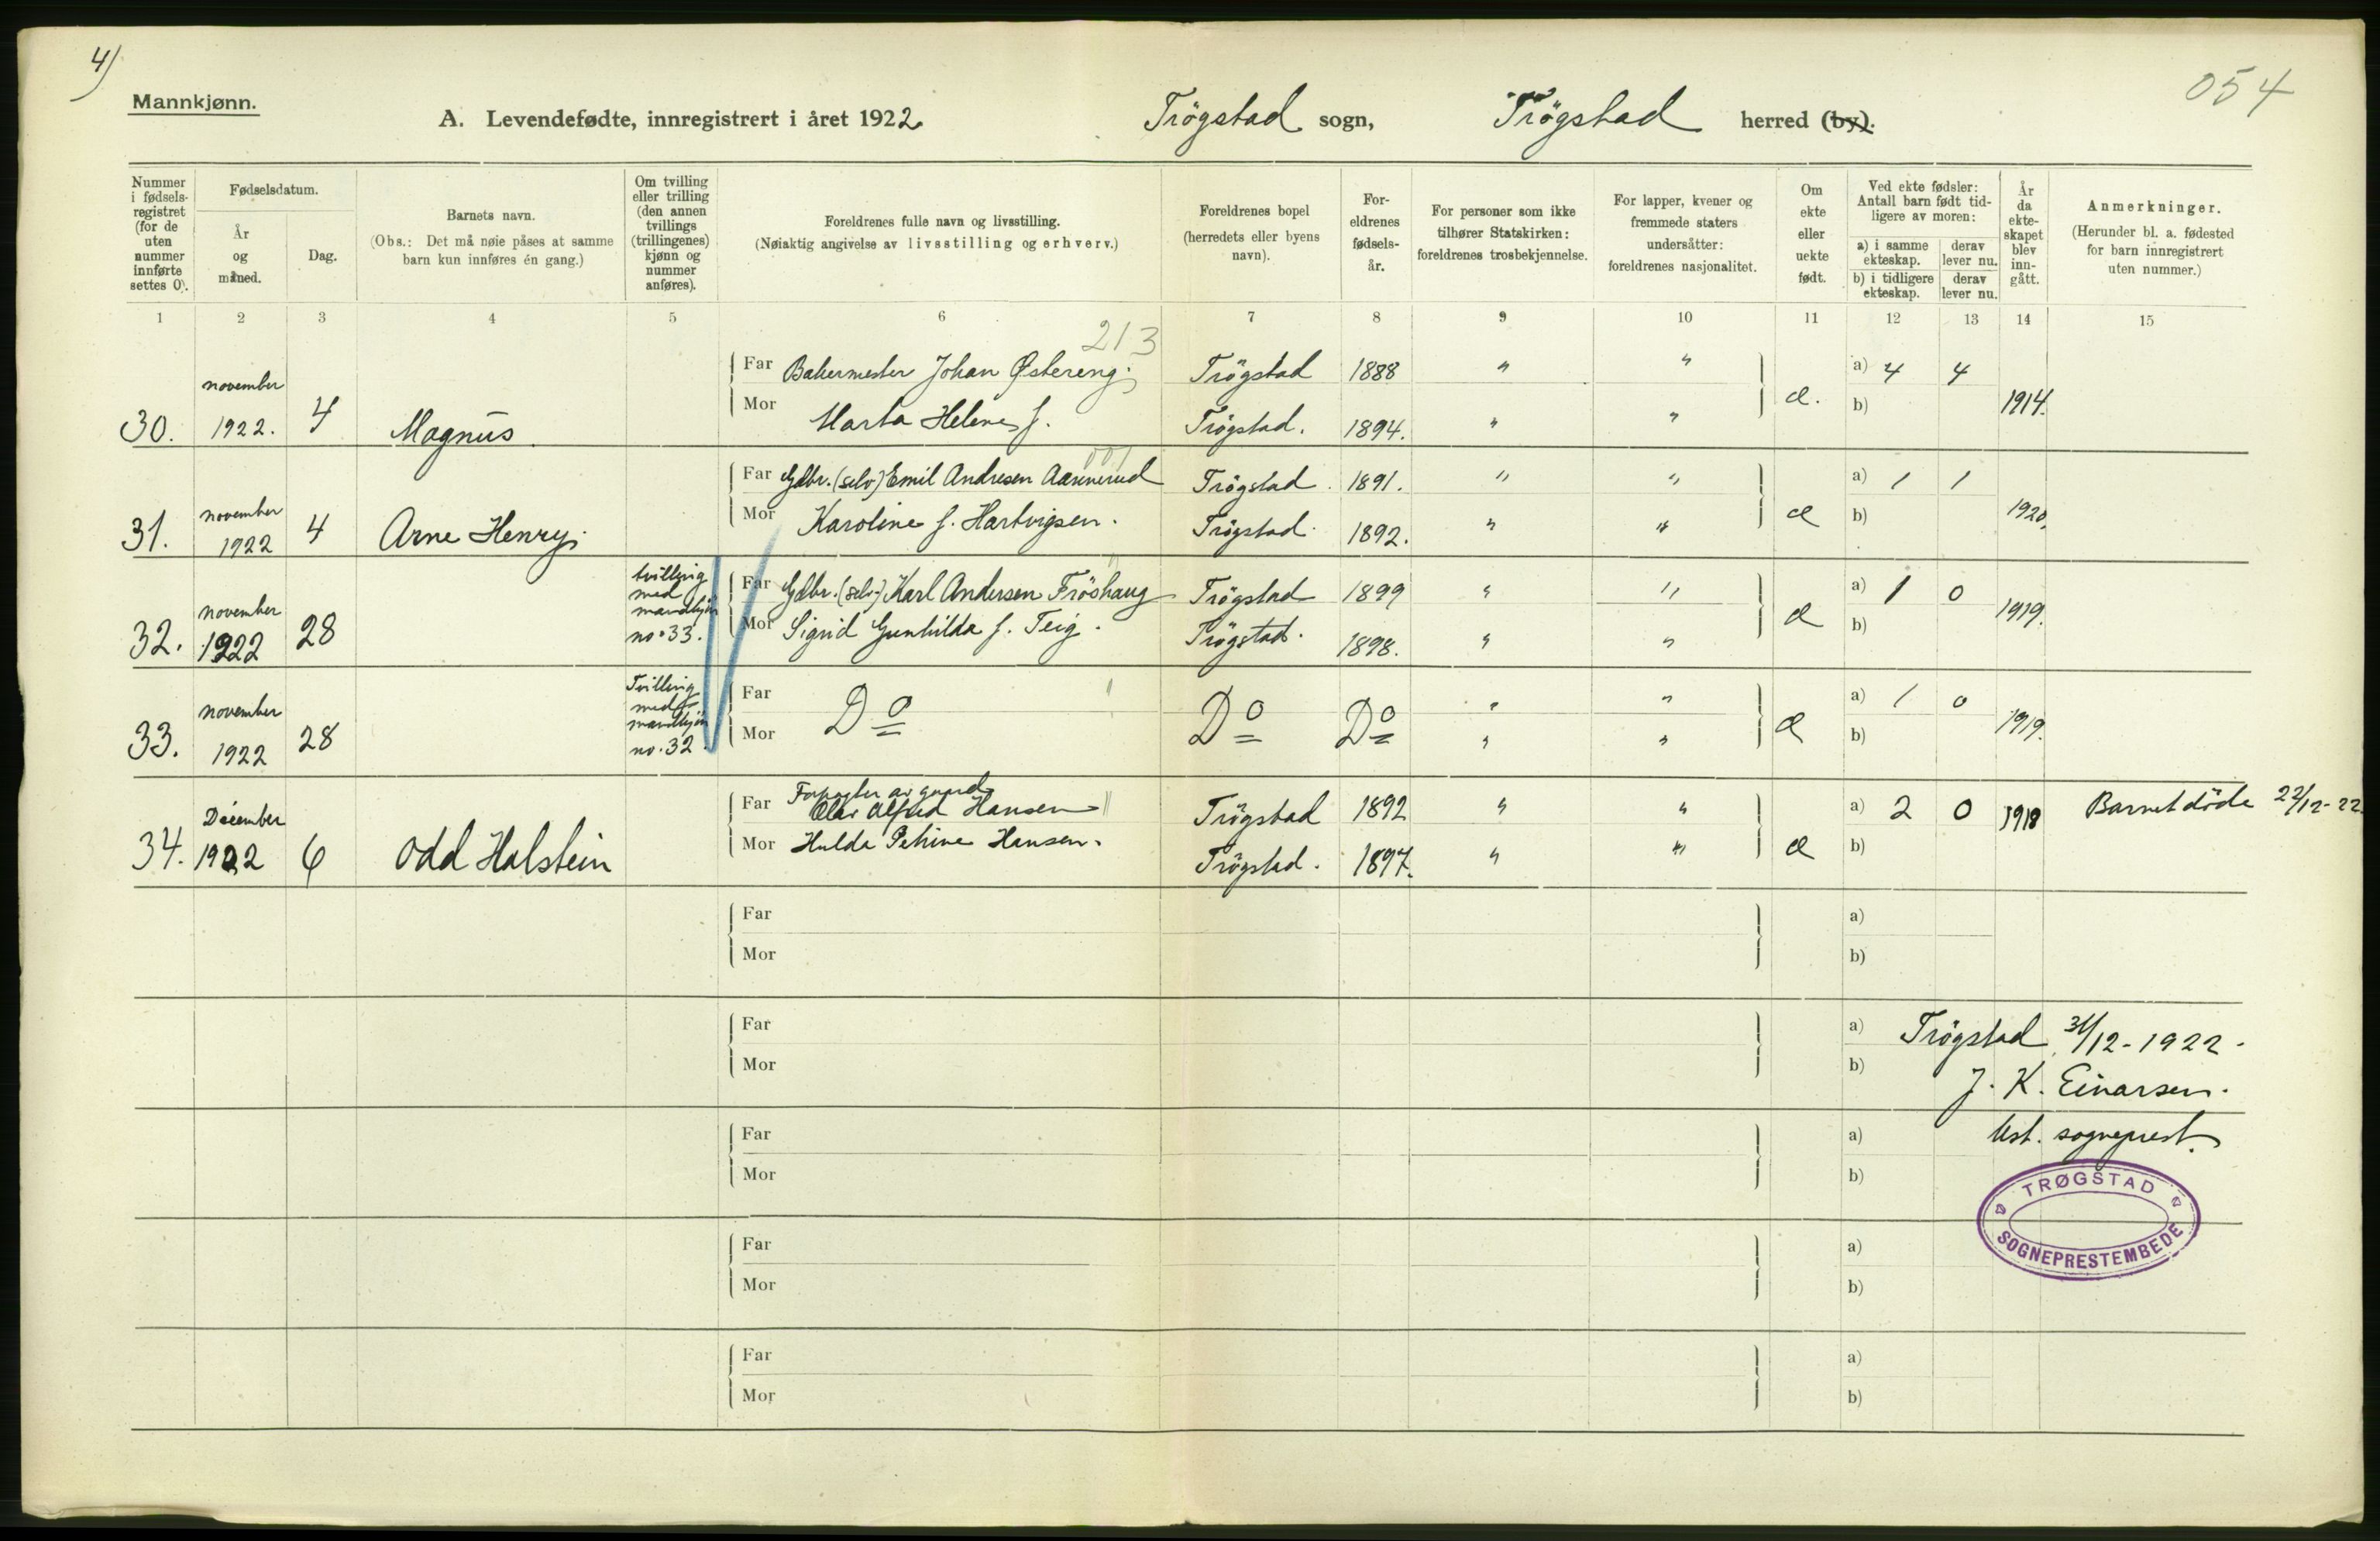 4)
054
Mannkjønn.
A. Levendefødte, innregistrert i året 1922 Trögstad sogn, Trögstad herred (by).
Nummer i fødsels-registret (for de uten nummer innførte settes 0).
Fødselsdatum.
År og måned.
Dag.
Barnets navn.
(Obs.: Det må nøie påses at samme barn kun innføres én gang.)
Om tvilling eller trilling (den annen tvillings (trillingenes) kjønn og nummer anføres).
Foreldrenes fulle navn og livsstilling.
(Nøiaktig angivelse av livsstilling og erhverv.)
Foreldrenes bopel (herredets eller byens navn).
For-eldrenes fødsels-år.
For personer som ikke tilhører Statskirken: foreldrenes trosbekjennelse.
For lapper, kvener og fremmede staters undersåtter: foreldrenes nasjonalitet.
Om ekte eller uekte født.
Ved ekte fødsler: Antall barn født tid-ligere av moren:
a) i samme ekteskap.
derav lever nu.
b) i tidligere ekteskap.
derav lever nu.
År da ekte-skapet blev inn-gått.
Anmerkninger.
(Herunder bl. a. fødested for barn innregistrert uten nummer.)
1 2 3 4 5 6 7 8 9 10 11 12 13 14 15
213
Far Bakermester Johan Østereng. Trögstad 1888 " " a) 4 4
30. november 1922. 4 Magnus. Mor Marta Helene f. Trögstad. 1894. " " æ. b) 1914.
001
Far Gdbr. (selv) Emil Andresen Aannerud Trögstad. 1891. " " a) 1 1
31. november 1922 4 Arne Henry. Mor Karoline f. Hartvigsen. Trögstad. 1892. " " æ b) 1920.
tvilling med mandkjøn no. 33. Far Gdbr. (selv) Karl Andersen Fröshaug Trögstad 1899 " " a) 1 0
32. november 1922 28 Mor Sigrid Gunhilda f. Teig. Trögstad. 1898. " " æ b) 1919.
Tvilling med mandkjøn no. 32. Far Do Do Do " " a) 1 0
33. november 1922 28 Mor " " æ b) 1919.
Far Forpagter av gaard Olav Alfred Hansen Trögstad 1892 " " a) 2 0 1918 Barnet döde 22/12-22.
34. December 1922 6 Odd Halstein Mor Hulda Petrine Hansen. Trögstad. 1897. " " æ b)
Far a)
Mor b)
Far a) Trögstad 31/12-1922.
Mor b) J. K. Einarsen.
Far a) kst. sogneprest.
Mor b)
TRØGSTAD
SOGNEPRESTEMBEDE
Far a)
Mor b)
Far a)
Mor b)